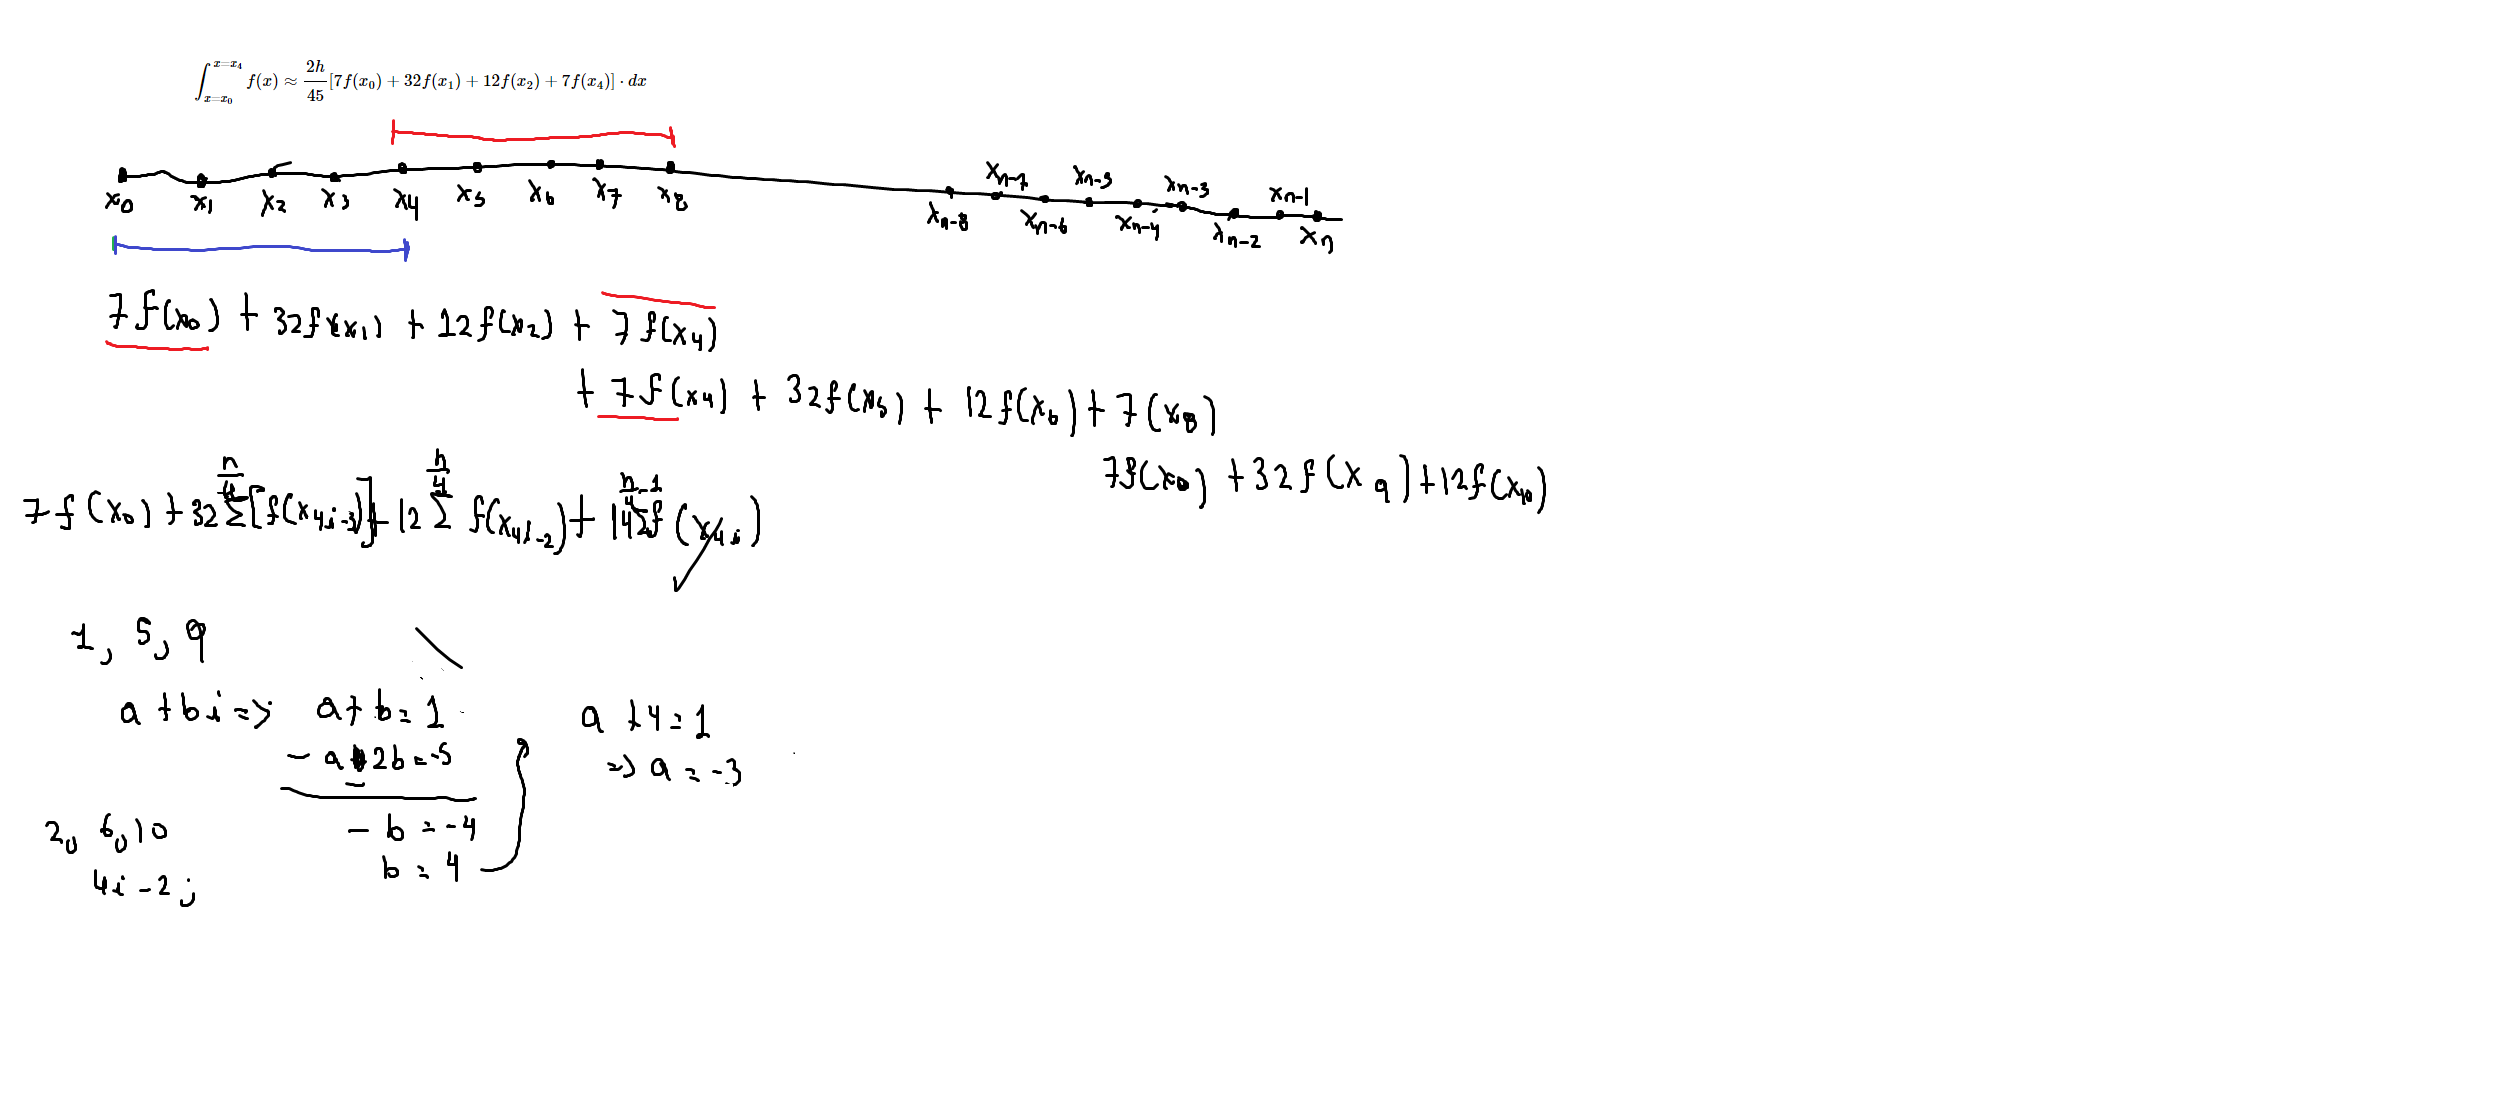 ∫_{x=x₀}^{x=x₄} f(x) ≈ 2h/45 [7f(x₀) + 32f(x₁) + 12f(x₂) + 7f(x₄)] · dx
x₀ x₁ x₂ x₃ x₄ x₅ x₆ x₇ x₈ xₙ₋₈ xₙ₋₇ xₙ₋₆ xₙ₋₄ xₙ₋₃ xₙ₋₂ xₙ₋₁ xₙ
7f(x₀) + 32f(x₁) + 12f(x₂) + 7f(x₄)
+ 7f(x₄) + 32f(x₅) + 12f(x₆) + 7(x₈)
7f(x₈) + 32f(x₉) + 12f(x₁₀)
7f(x₀) + 32 Σ^{n/4} [f(x₄ᵢ₋₃)] + 12 Σ^{n/4} f(x₄ᵢ₋₂) + 14 Σ^{n/4-1} f(x₄ᵢ)
1, 5, 9
a + bi => a + b = 1
- a - 2b = -5
- b = -4
b = 4
a + 4 = 1
=> a = -3
2, 6, 10
4i - 2;